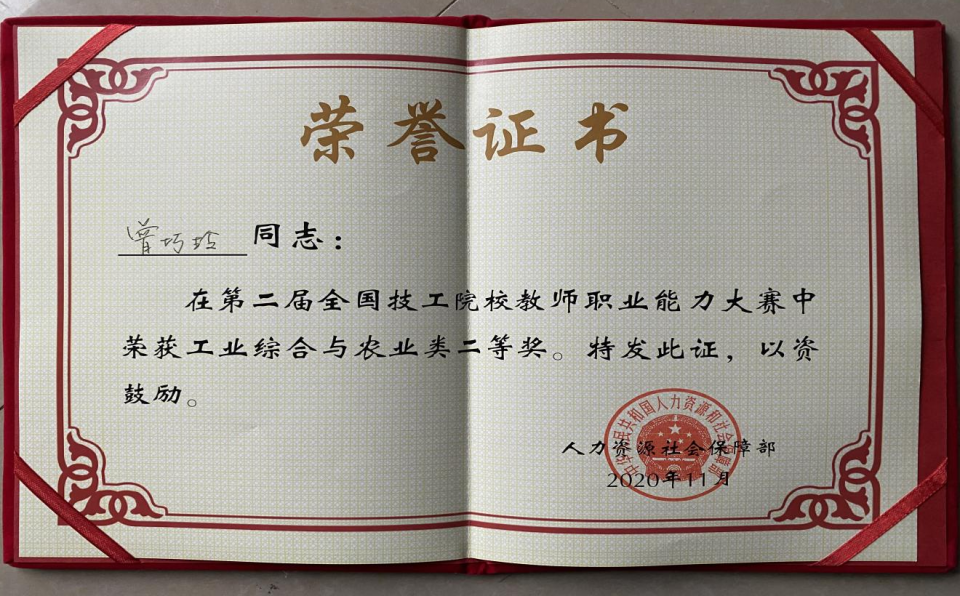 荣誉证书
曾巧玲 同志：
在第二届全国技工院校教师职业能力大赛中
荣获工业综合与农业类二等奖。特发此证，以资
鼓励。
中华人民共和国人力资源和社会保障部
人力资源社会保障部
2020年11月